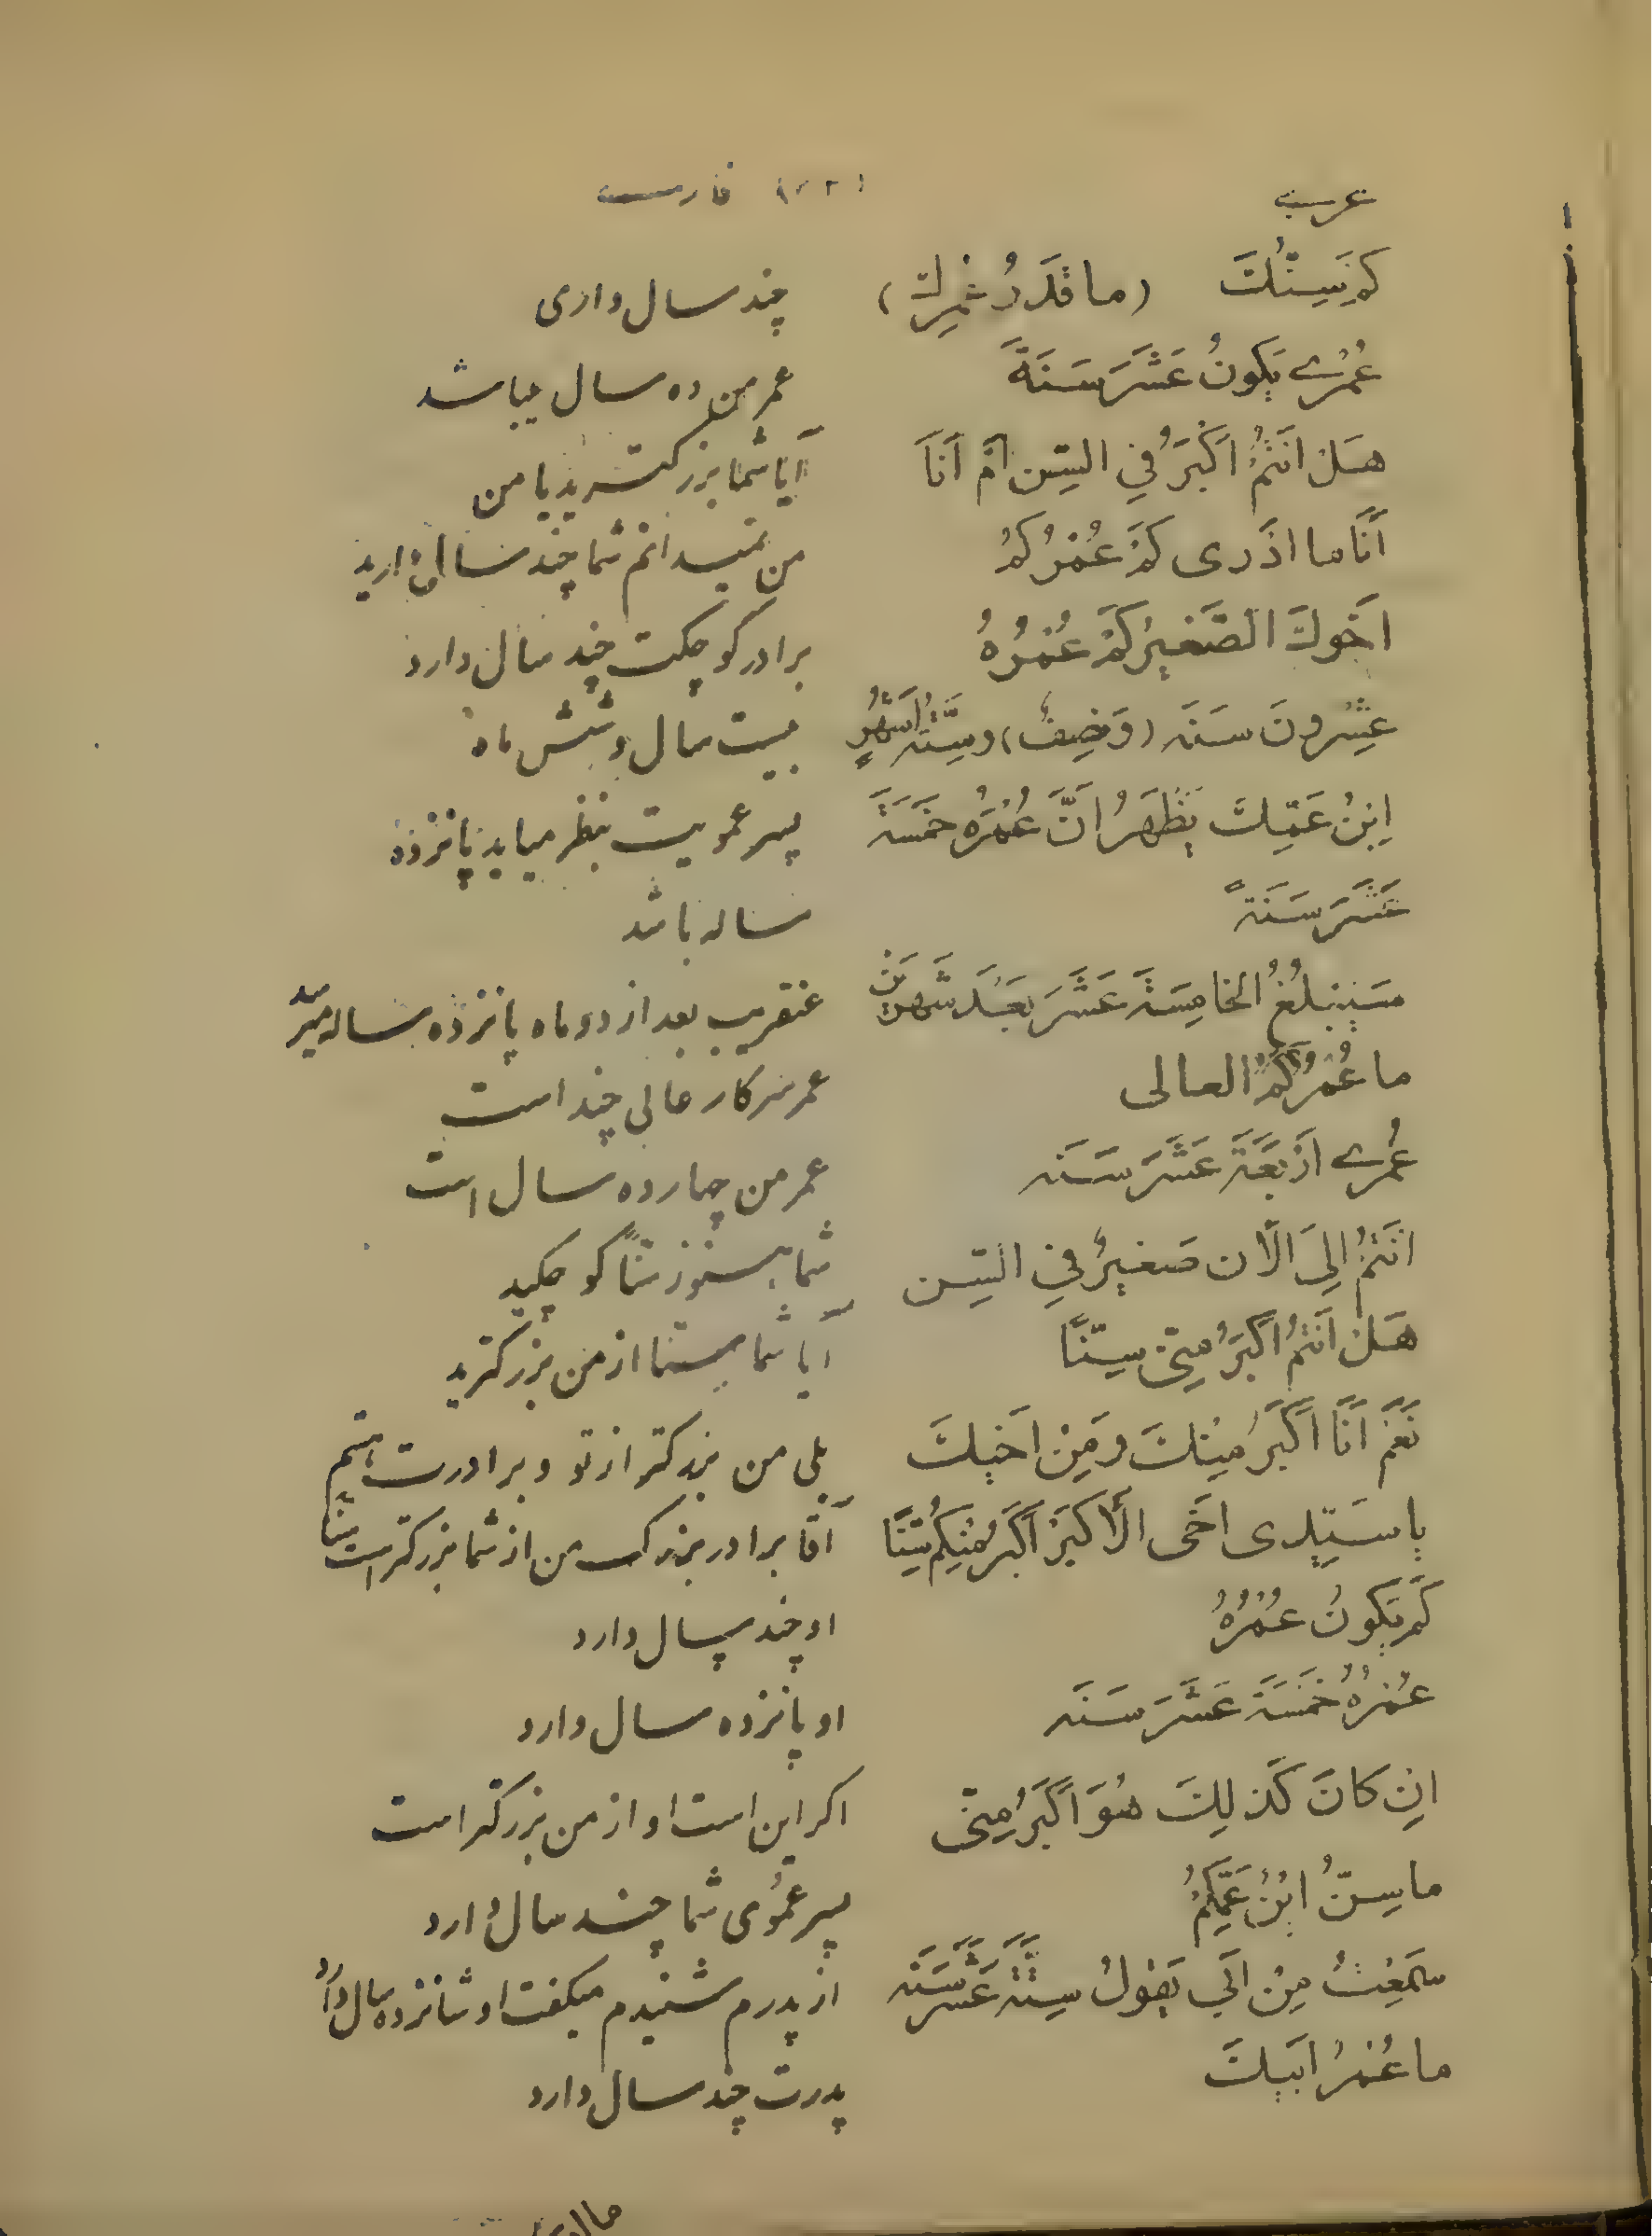 عربی فارسی
کَمْ سِنُّكَ (ما قَدَرُ عُمْرِكَ) چند سال داری
عُمْری یَکونُ عَشَرَ سَنَةً عمر من ده سال میباشد
هَلْ اَنْتُمْ اَکْبَرُ فِي السِّن اَمْ اَنَا آیا شما بزرکترید یا من
اَنَا ما اَدْری کَمْ عُمْرُکُمْ من نمیدانم شما چند سال دارید
اَخَوكَ الصَّغیرُ کَمْ عُمْرُهُ برادر کوچکت چند سال دارد
عِشْرونَ سَنَه (وَنِصِفُ) وسِتَّهُ اَشْهُرٍ بیست سال و شش ماه
اِبْنُ عَمِّكَ یَظْهَرُ اَنَّ عُمْرُه خَمْسَةَ پسر عمویت بنظر میاید پانزده
عَشَرَ سَنَةً ساله باشد
سَیَبْلُغُ الخامِسَةَ عَشَرَ بَعْدَ شَهرَیْن عنقریب بعد از دو ماه پانزده ساله میرسد
ما عُمْرُکُمُ العالی عمر سرکار عالی چند است
عُمْری اَرْبَعَةَ عَشَرَ سَنَه عمر من چهارده سال است
اَنْتُمْ اِلیَ الْاَن صَغیرٌ فِي السِّن شما هنوز سنّاً کوچکید
هَلْ اَنْتُمْ اَکْبَرُ مِنّی سِنّاً آیا شما سنا از من بزرکترید
نَعَمْ اَنَا اَکْبَرُ مِنْكَ وَ مِنْ اَخیكَ بلی من بزرکتر از تو و برادرت هستم
یا سَیِّدی اَخی الْاَکبَرْ اَکْبَرُ مِنْکُمْ سِنّاً آقا برادر بزرک من از شما بزرکتر است سنّا
کَمْ یَکونُ عُمْرُهُ او چند سال دارد
عُمْرُهُ خَمْسَةَ عَشَرَ سَنَه او پانزده سال دارد
اِنْ کانَ کَذلِكَ هُوَ اَکْبَرُ مِنّی اکر این است او از من بزرکتر است
ما سِنُّ ابْنُ عَمِّکُمْ پسر عموی شما چند سال دارد
سَمِعْتُ مِنْ اَبی یَقولُ سِتَّةَ عَشَرَ سَنَه از پدرم شنیدم میکفت او شانزده سال دارد
ما عُمْرُ اَبیكَ پدرت چند سال دارد